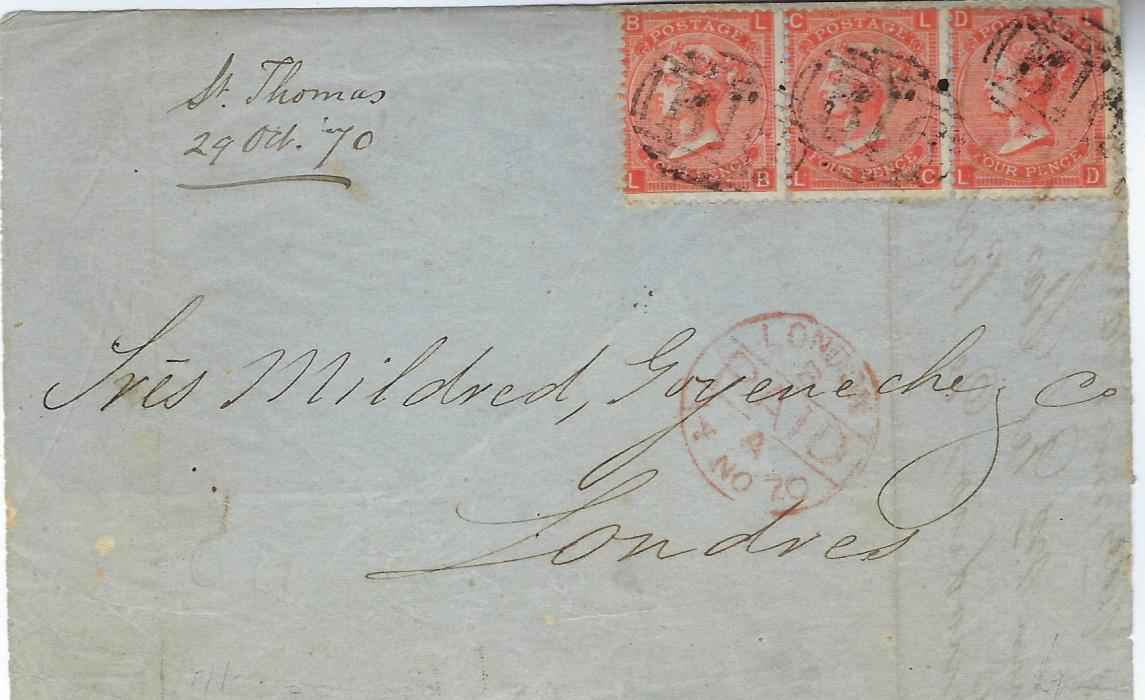 St. Thomas
29 Oct. '70
B L C L D L
POSTAGE POSTAGE
FOUR PENCE FOUR PENCE FOUR PENCE
L B L C L D
Srēs Mildred, Goyeneche y Co
Londres
LONDON
PAID
A
NO 70